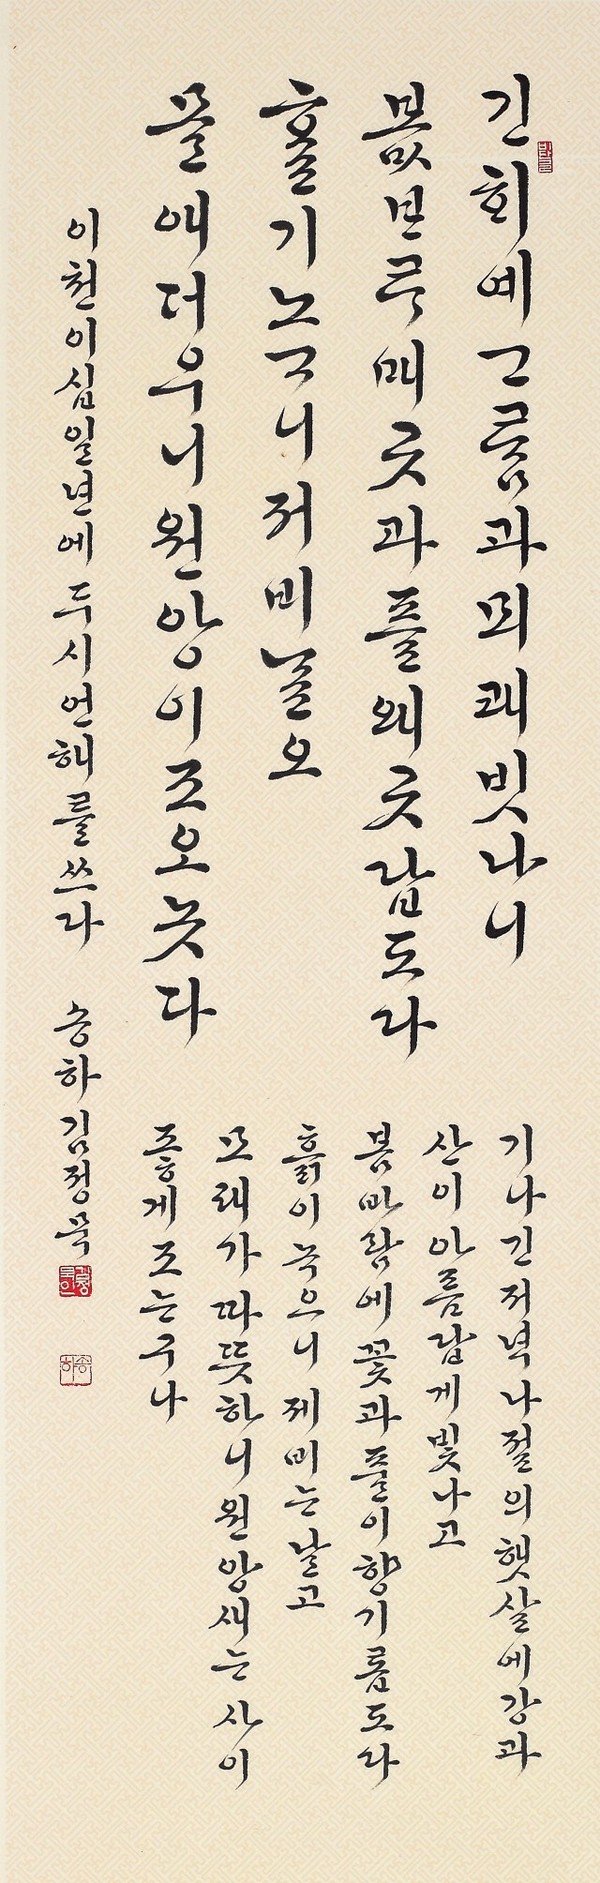 긴ᄒᆡ예ᄀᆞᄅᆞᆷ과뫼쾌빗나니
보ᇝᄇᆞᄅᆞ매곳과플왜곳답도다
ᄒᆞᆯ기노ᄀᆞ니져비ᄂᆞᆯ오
몰애더우니원앙이ᄌᆞ오놋다
기나긴저녁나절의햇살에강과
산이아름답게빛나고
봄바람에꽃과풀이향기롭도다
흙이녹으니제비는날고
모래가따뜻하니원앙새는사이
좋게조는구나
이천이십일년에두시언해를쓰다 송하김정묵